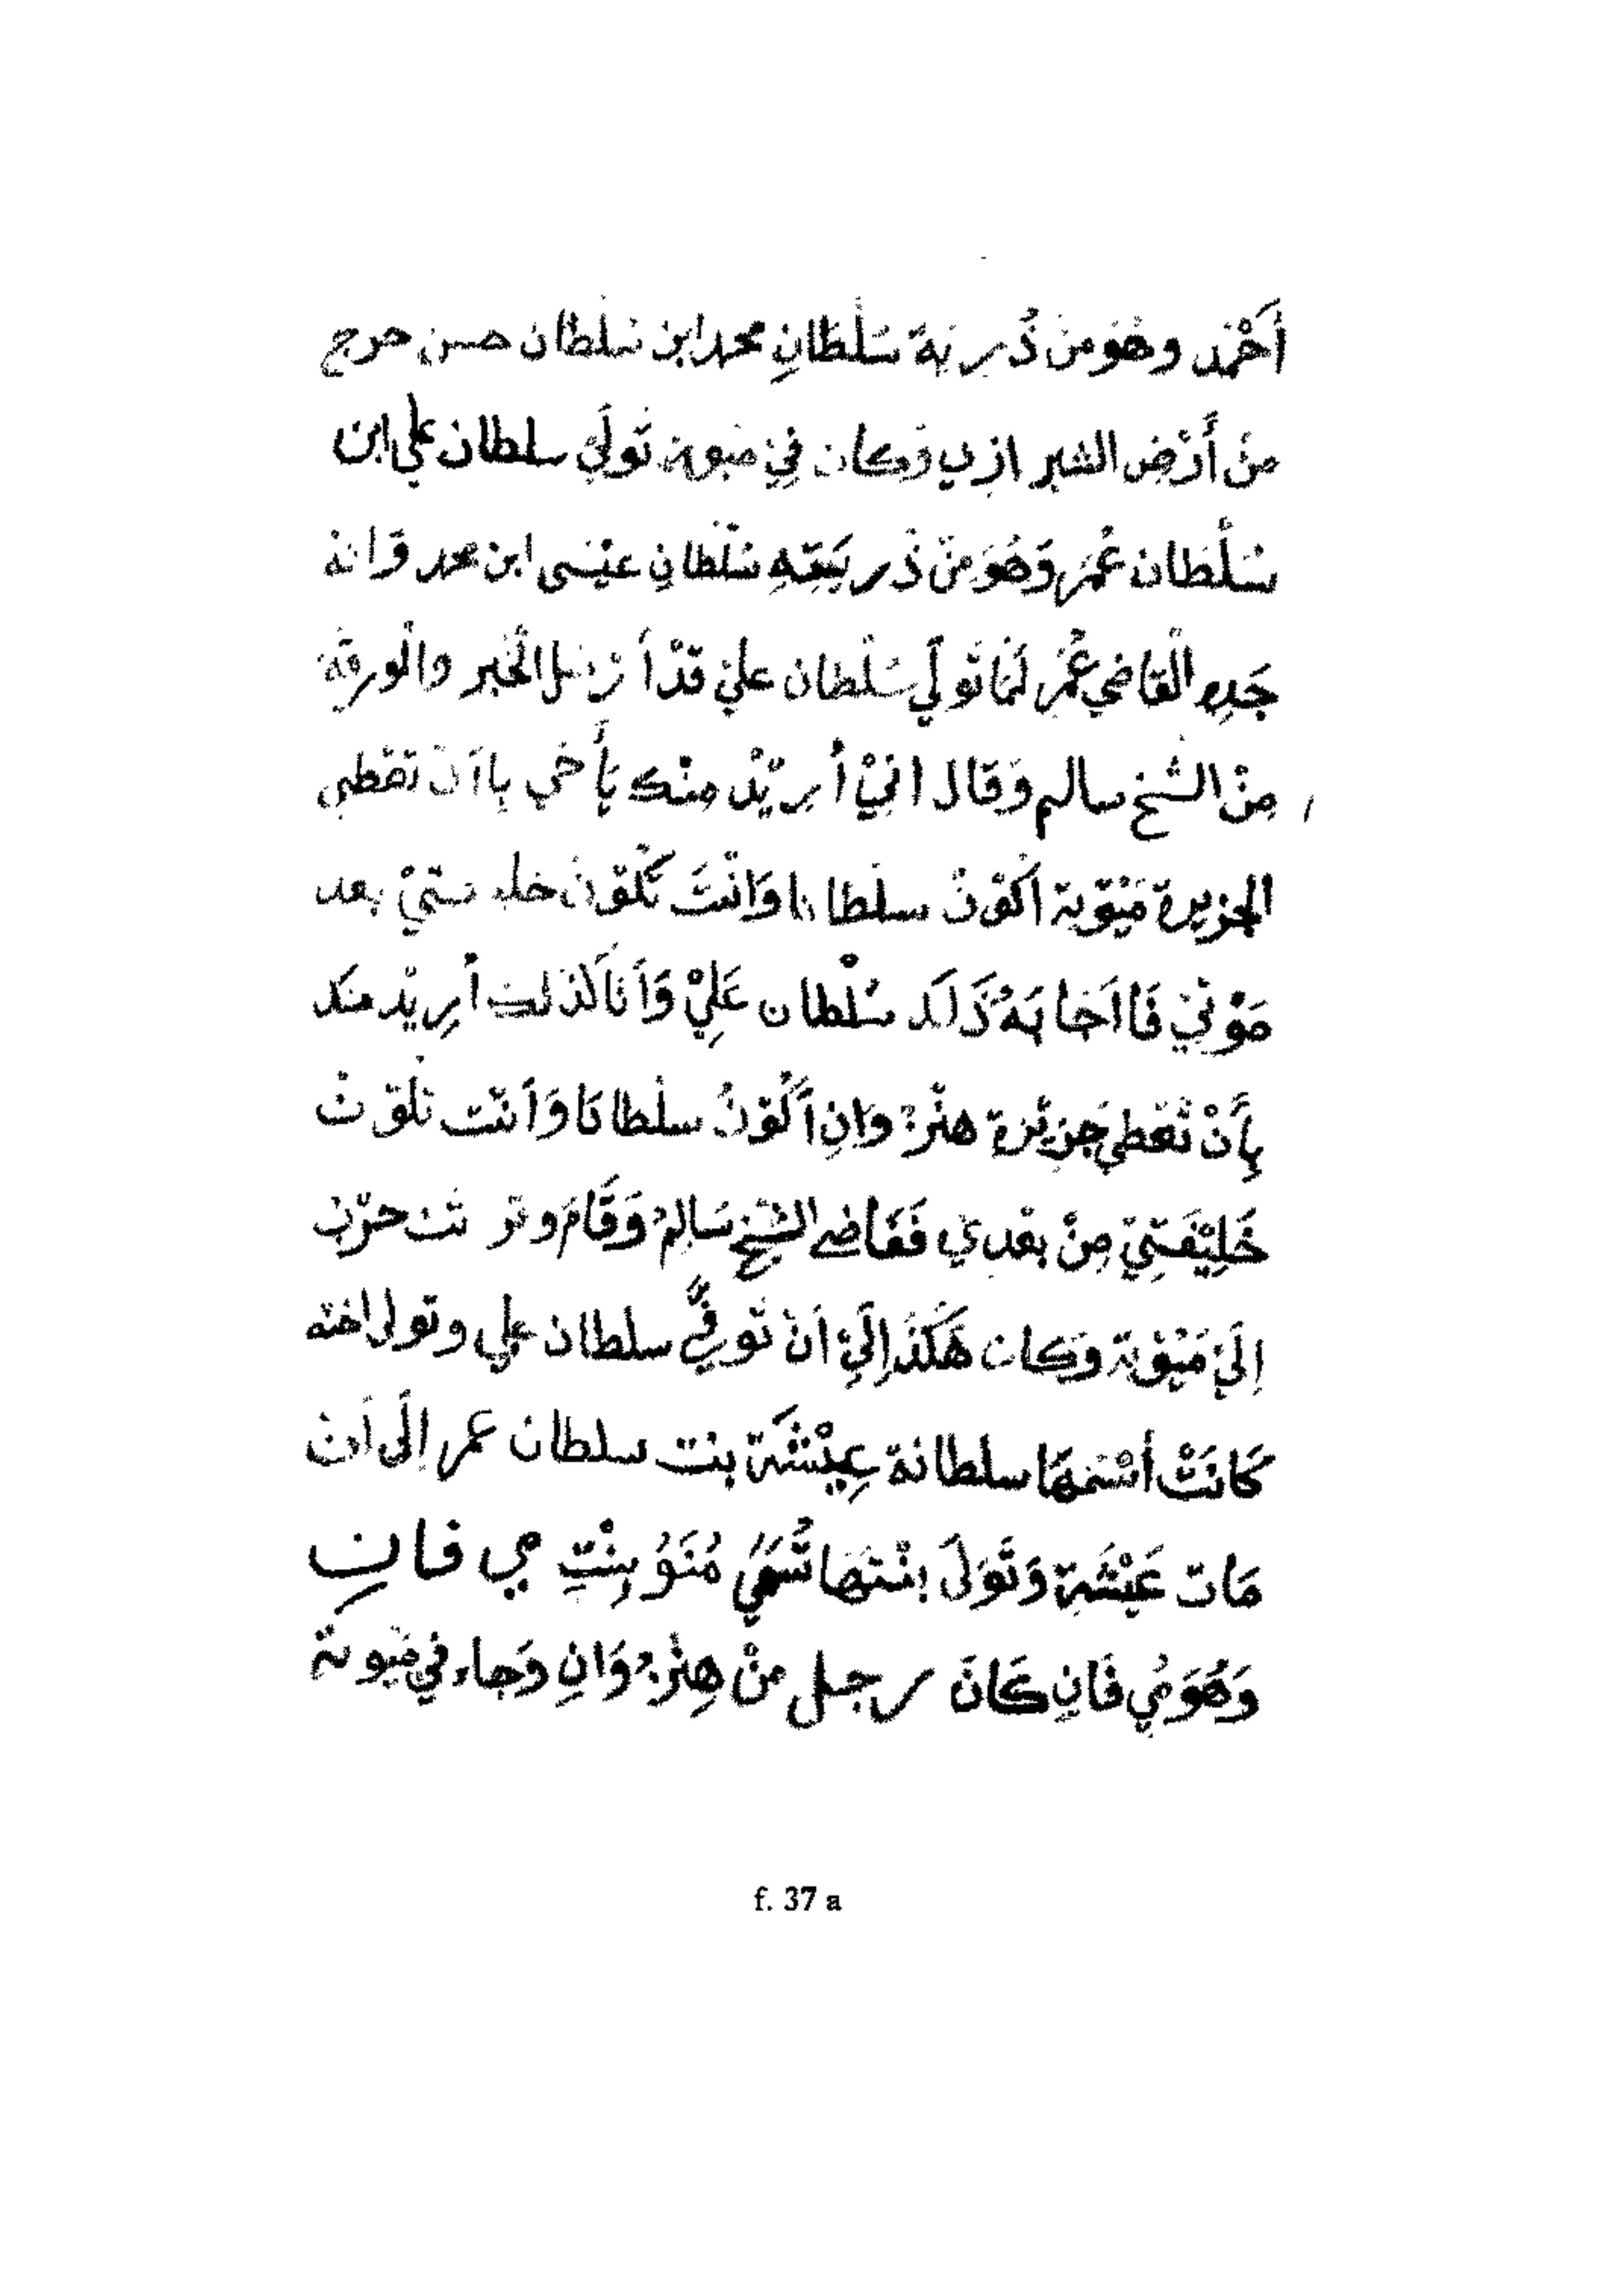 أَحْمَد وهُوَ مِنْ ذُرية سُلْطَانِ محمد ابن سُلْطان حسن خرج
مِنْ أَرْضِ الشيرازي وَكان فِيْ مَيوتة تَولَيْ سلطان علي ابن
سُلْطان عُمَر وَهُوَ مِنْ ذُريَتِهِ سُلْطانِ عيْسَى ابن محمد وَانهُ
جَدِهِ الْقاضي عُمَر لَمَّا تَولَيْ سُلْطان عليْ قدْ أَرْسَل الْخَبر والْورقة
مِنْ الشيخ سالم وَقال انيْ أُريْدُ مِنْك يأَخي بِاَنْ تعْطي
الجزيرة مَيْوتة اَكُوْنُ سلطانا وَانْتَ تَكُوْنُ خليفتيْ بعد
مَوْتيْ فَااَجَابَهُ ذَالَك سُلْطان عَلِيْ وَأَنَا كَذلك أُرِيْد منك
بِأَنْ تَعْطي جزِيْرة هنْزُوَانِ أَكُوْنُ سلْطانَا وَأَنْت تكُوْنْ
خَلِيْفَتِيْ مِنْ بعْدِيْ فَقَاضي الشيْخ سَالِمْ وَقَامَ وتر تث حرْب
اِلَيْ مَيْوْتة وَكان هَكَذَ إِلَيْ اَنْ تُوفيْ سلطان علي وتولى اخته
كَانَتْ أسْمهَا سلطانة عِيْشَة بنت سلطان عمر إِلَى اَن
مَات عَيْشَة وَتَوَلَى ابْنتهَا تُسَمَيْ مُنَوُ بِنْتِ مي فانِ
وَهُوَ مُي فَانِ كَانَ رجل مِنْ هِنْزُوَانِ وَجاء في مَيوتة
f. 37 a